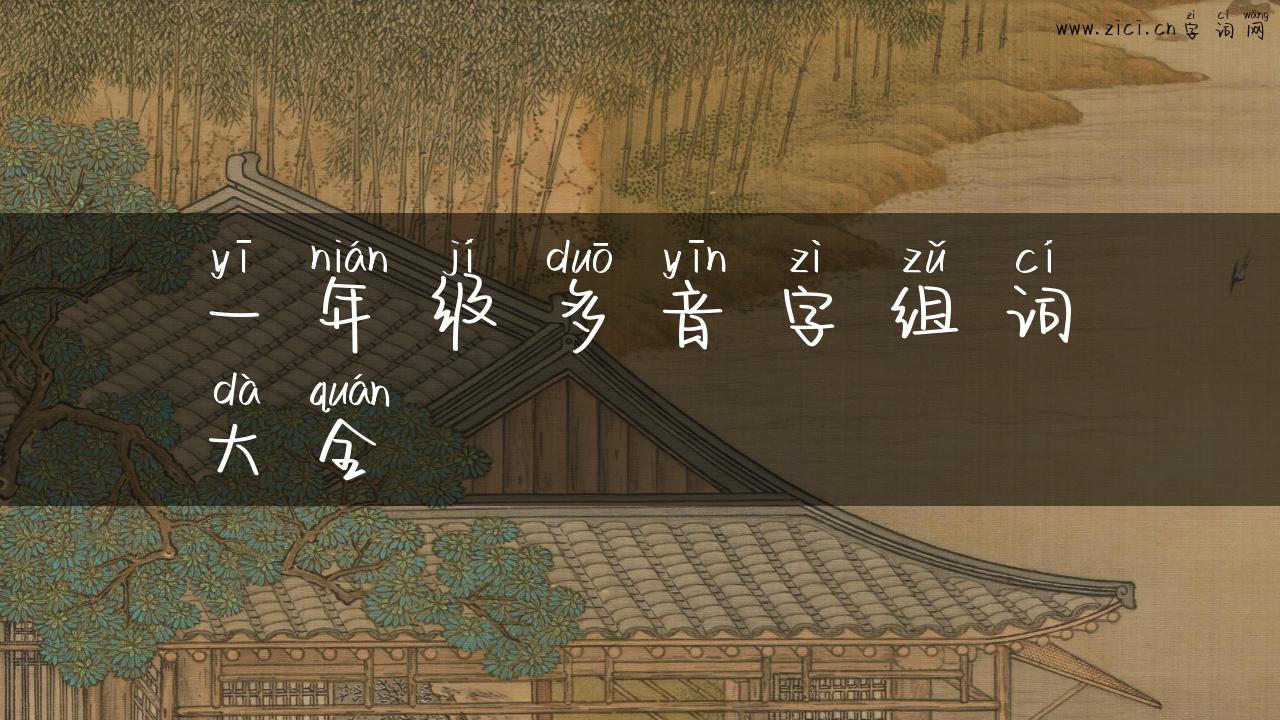 zì cí wǎng
www.zici.cn字词网
yī nián jí duō yīn zì zǔ cí
一年级多音字组词
dà quán
大全